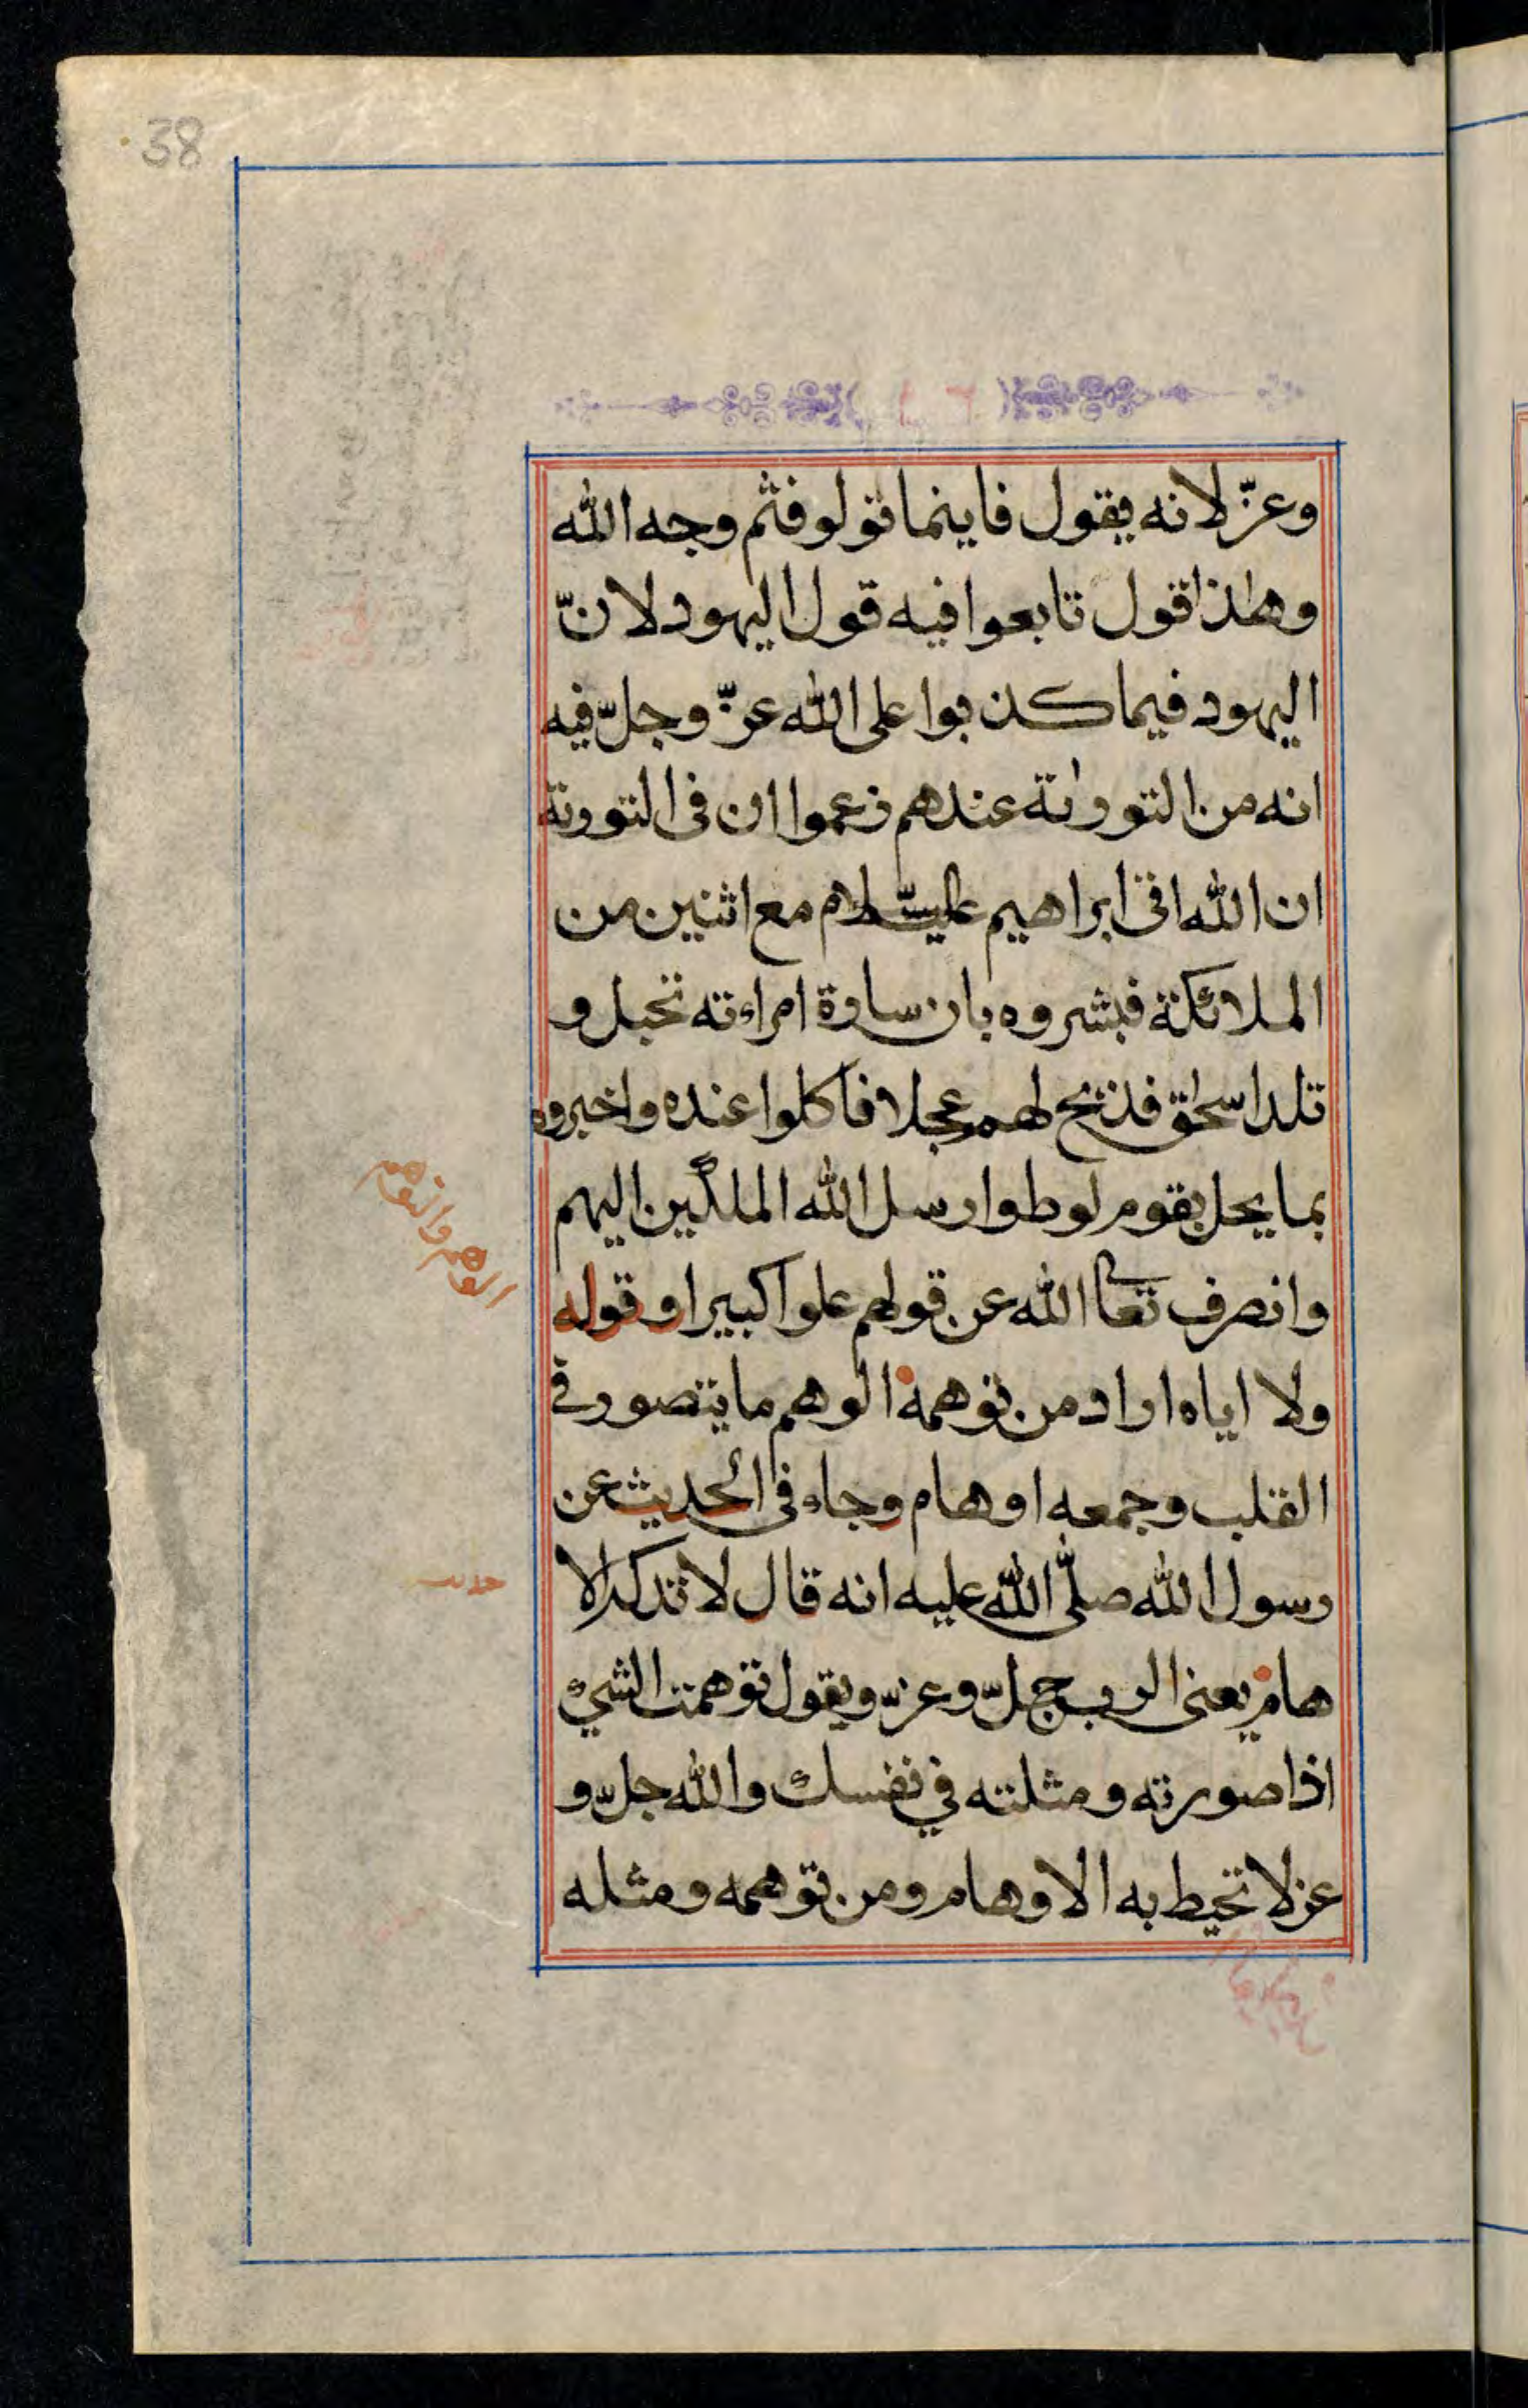 38
وعزّ لانه يقول فاينما تولو فثم وجه الله
وهٰذا قول تابعوا فيه قول اليهود لانّ
اليهود فيما كذبوا على الله عزّ وجلّ فيه
انه من التورٰىة عندهم زعموا ان فى التورىة
ان الله اتى ابراهيم عليه السّلام مع اثنين من
الملائكة فبشروه بان سارة امراءته تحبل و
تلد اسحٰق فذبح لهم عجلا فاكلوا عنده واخبروه
بما يحل بقوم لوط وارسل الله الملكين اليهم
وانصرف تعا الله عن قولهم علوا كبيرا و قوله
ولا اياه اراد من توهمه الوهم ما يتصور فى
القلب وجمعه اوهام وجاء فى الحديث عن
رسول الله صلّى الله عليه انه قال لا تدركه الا
هام يعنى الرب جلّ وعزّ ويقول توهمت الشىء
اذا صورته ومثلته في نفسك والله جلّ و
عز لا تحيط به الاوهام ومن توهمه ومثله
الوهم والتوهم
حديث